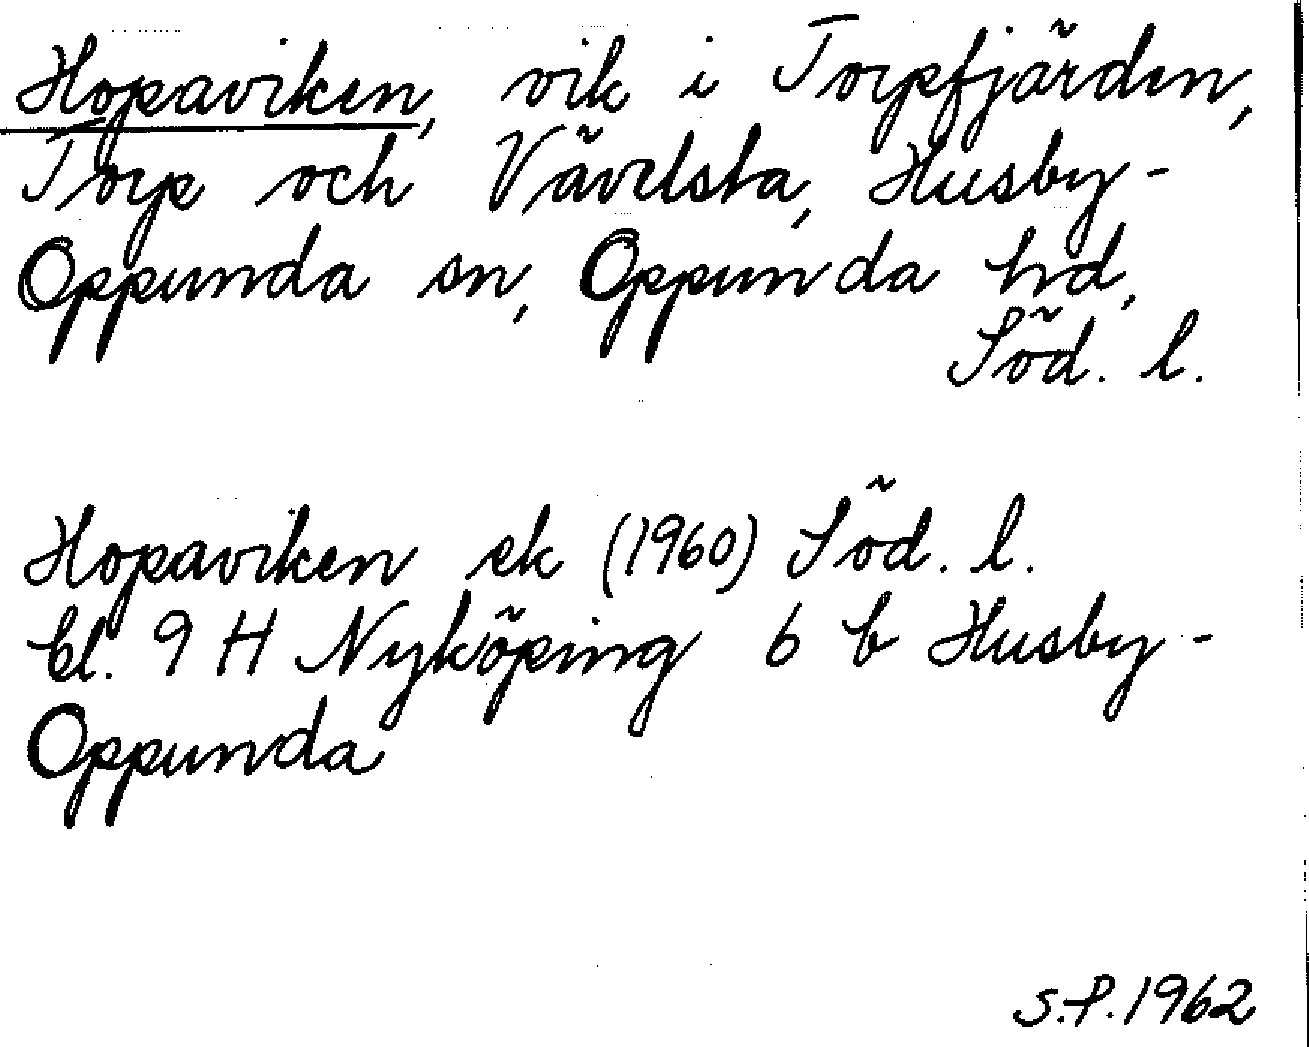 Hopaviken, vik i Torpfjärden,
Torp och Vävelsta, Husby-
Oppunda sn, Oppunda hd,
Söd. l.
Hopaviken ek (1960) Söd. l.
bl. 9 H Nyköping 6 b Husby-
Oppunda
S.P. 1962